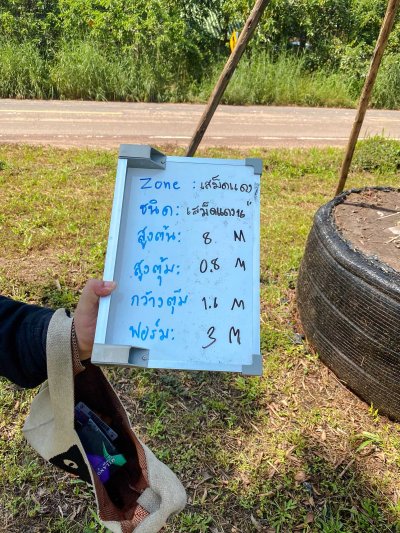 Zone : เสม็ดแดง
ชนิด: เสม็ดแดงน"
สูงต้น: 8 M
สูงตุ้ม: 0.8 M
กว้างตุ้ม 1.6 M
ฟอร์ม: 3 M